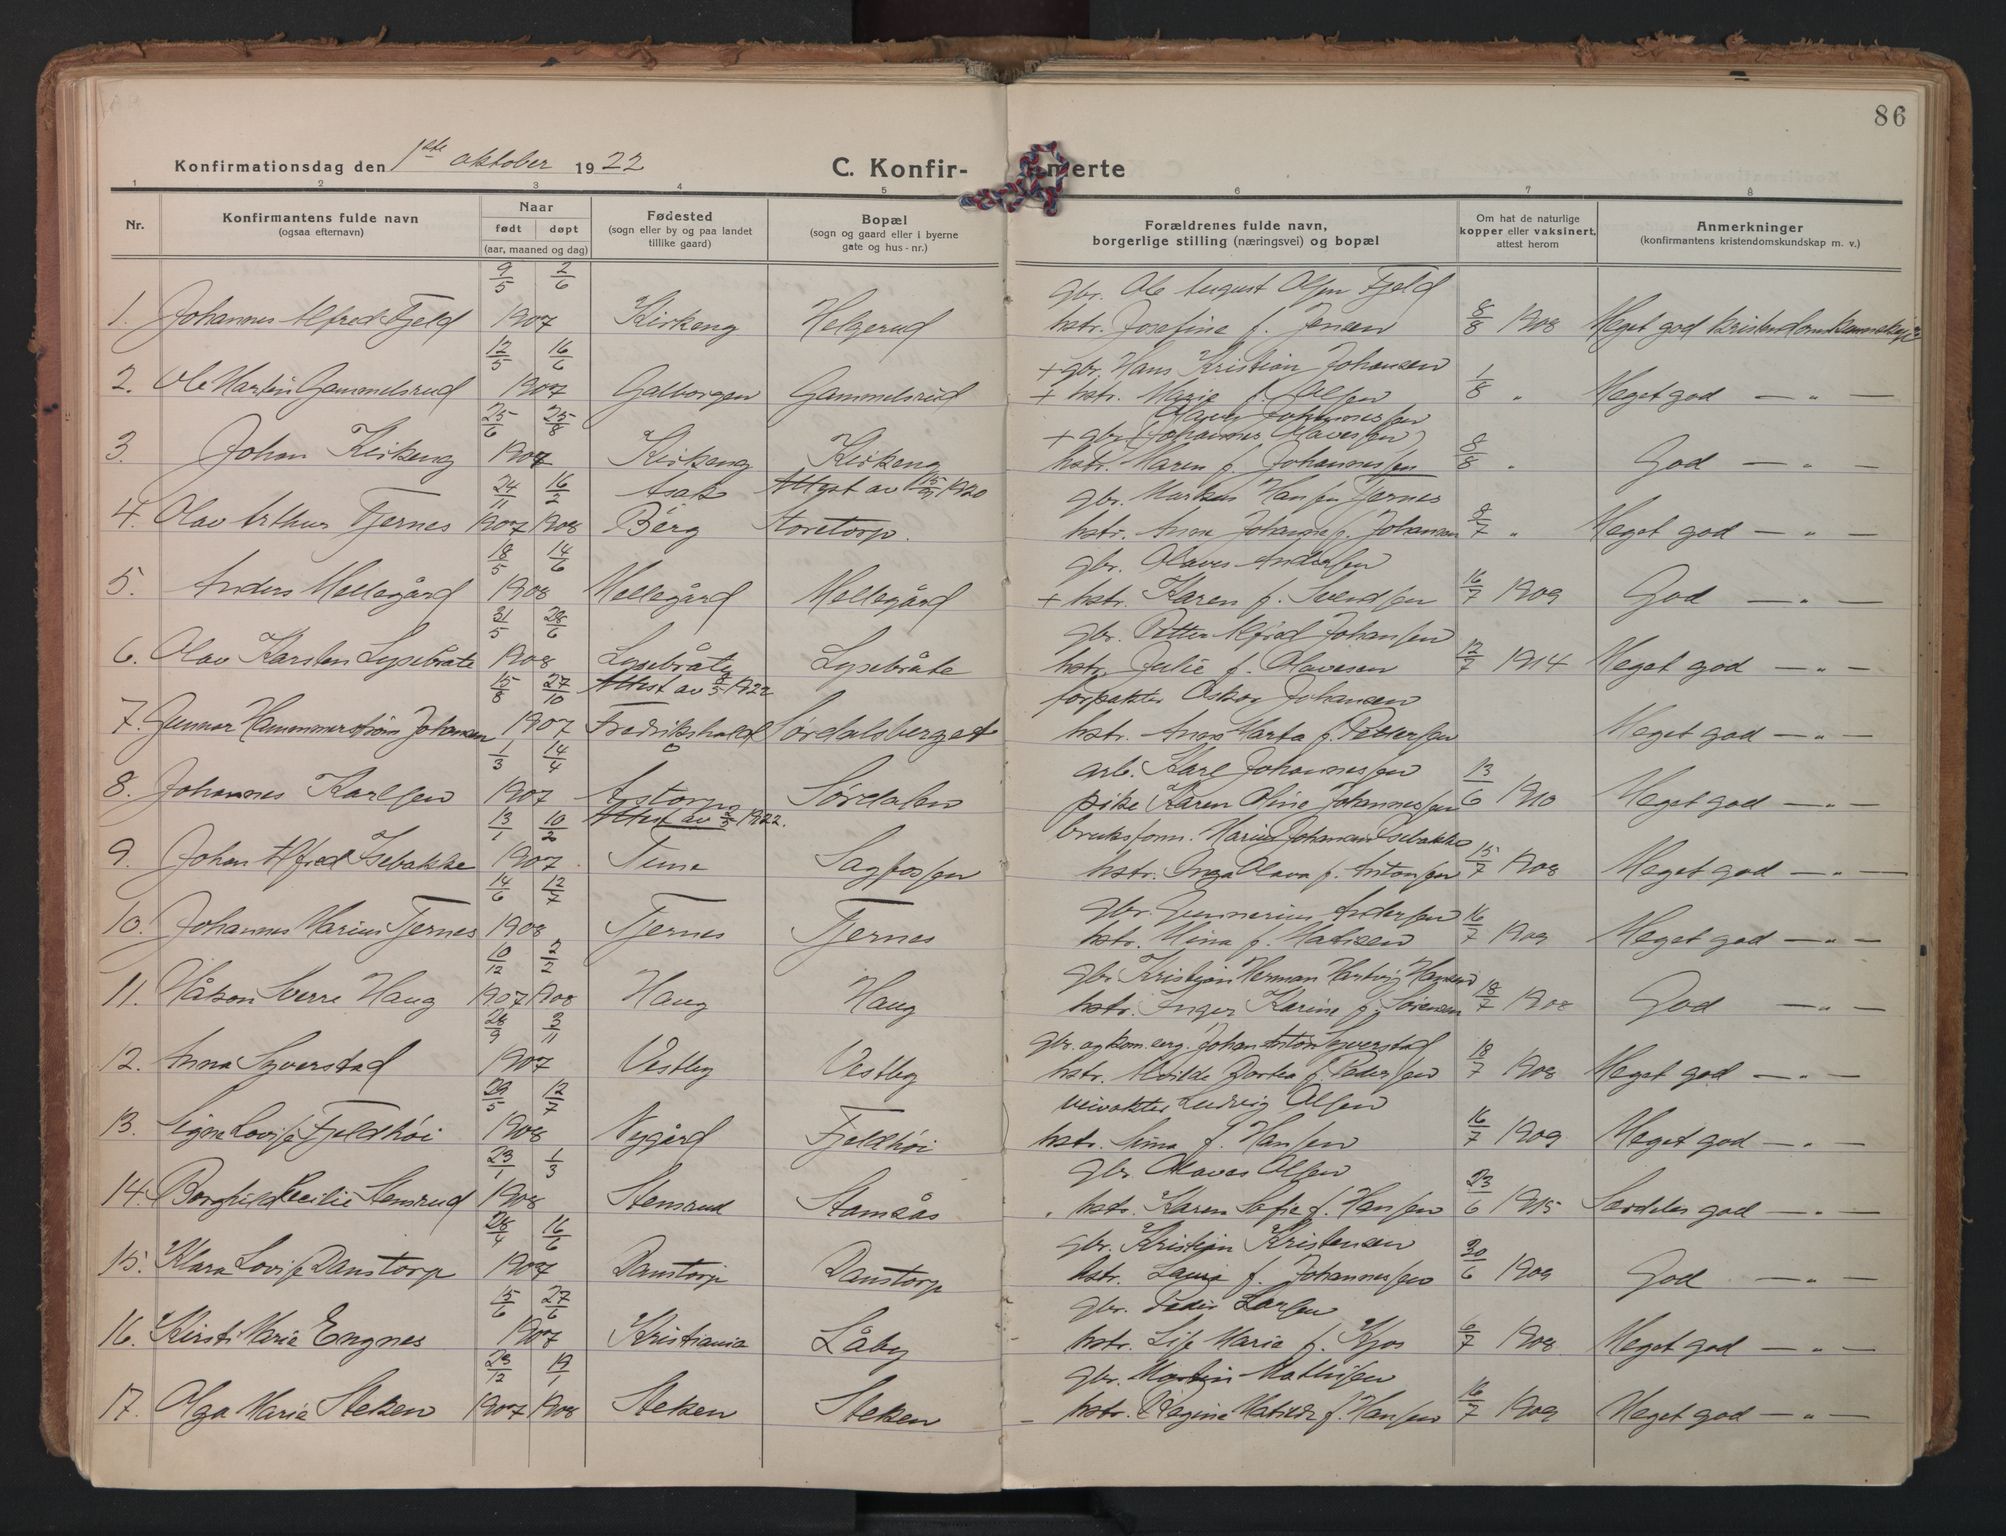 86
Konfirmationsdag den 1ste oktober 1922 C. Konfirmerte
1 2 3 4 5 6 7 8
Nr. Konfirmantens fulde navn (ogsaa efternavn) Naar født døpt (aar, maaned og dag) Fødested (sogn eller by og paa landet tillike gaard) Bopæl (sogn og gaard eller i byerne gate og hus-nr.) Forældrenes fulde navn, borgerlige stilling (næringsvei) og bopæl Om hat de naturlige kopper eller vaksinert, attest herom Anmerkninger (konfirmantens kristendomskundskap m. v.)
9/5 2/6 gbr. Ole August Olsen Fjeld
1. Johannes Alfred Fjeld 1907 Kirkeng Helgerud hstr. Josefine f. Jensen 8/8 1908 Meget god kristendomskunnskap
12/5 16/6 + gbr. Hans Kristian Johansen
2. Ole Martin Gammelsrud 1907 Galborgen Gammelsrud + hstr. Marie f. Olsen 1/8 " Meget god — " —
25/6 25/8 + gbr. (Johannes Olavessen)
3. Johan Kirkeng 1907 Kirkeng Kirkeng hstr. Maren f. Johannessen 8/8 " God — " —
24/11 16/2 Asak Attest av 1920 gbr. Markus Hansen Tjernes
4. Olav Arthur Tjernes 1907 1908 Berg Storetorp. hstr. Anna Johanne f. Johansen 8/7 " Meget god — " —
18/5 14/6 gbr. Olaves Andersen
5. Anders Mellegård 1908 Mellegård Mellegård + hstr. Karen f. Svendsen 16/7 1909 God — " —
31/5 28/6 gbr. Petter Alfred Johansen
6. Olav Karsten Lysebråte 1908 Lysebråte Lysebråte hstr. Julie f. Olavesen 12/7 1914 Meget god — " —
15/8 27/10 Attest av 1922 forpakter Oskar Johansen
7. Gunnar Hammerstrøm Johansen 1907 Fredrikshald Sørdalsberget hstr. Anna Marta f. Pettersen Meget god — " —
1/3 14/4 arb. Karl Johannessen
8. Johannes Karlsen 1907 Åstorp Sørdalen pike Karen Oline Johannessen 13/6 1910 Meget god — " —
13/1 10/2 Attest av 1922. bruksform. Marius Johansen Isebakke
9. Johan Alfred Isebakke 1907 Tune Sagfossen hstr. Inga Olava f. Antonsen 15/7 1908 Meget god — " —
14/6 12/7 gbr. Gunnerius Andersen
10. Johannes Marius Tjernes 1908 Tjernes Tjernes hstr. Mina f. Matisen 16/7 1909 Meget god — " —
10/12 2/2 gbr. Kristjan Herman Hartvig Hansen
11. Håkon Sverre Haug 1907 1908 Haug Haug hstr. Inger Karine f. Sørensen 18/7 1908 God — " —
28/9 3/11 gbr. og kom. erg. Johan Anton Syverstad
12. Anna Syverstad 1907 Vestby Vestby hstr. Alvilde Dortea f. Pedersen 18/7 1908 Meget god — " —
29/5 12/7 veivokter Ludvig Olsen
13. Signe Lovise Fjeldhøi 1908 Nygård Fjeldhøi hstr. Anna f. Hansen 16/7 1909 Meget god — " —
23/1 1/3 gbr. Olaves Olsen
14. Borghild Cecilie Stemsrud 1908 Stemsrud Stamsås hstr. Karen Sofie f. Hansen 23/6 1915 Særdeles god — " —
28/4 16/6 gbr. Kristjan Kristensen
15. Klara Lovise Danstorp 1907 Danstorp Danstorp hstr. Laura f. Johannessen 30/6 1909 God — " —
15/6 27/6 gbr. Peder Larsen
16. Kirsti Marie Engnes 1907 Kristiania Låby hstr. Lise Marie f. Kjos 6/7 1908 Meget god — " —
23/12 19/1 gbr. Martin Mathisen
17. Olga Marie Steken 1907 1908 Steken Steken hstr. Regine Matilde f. Hansen 16/7 1909 Meget god — " —